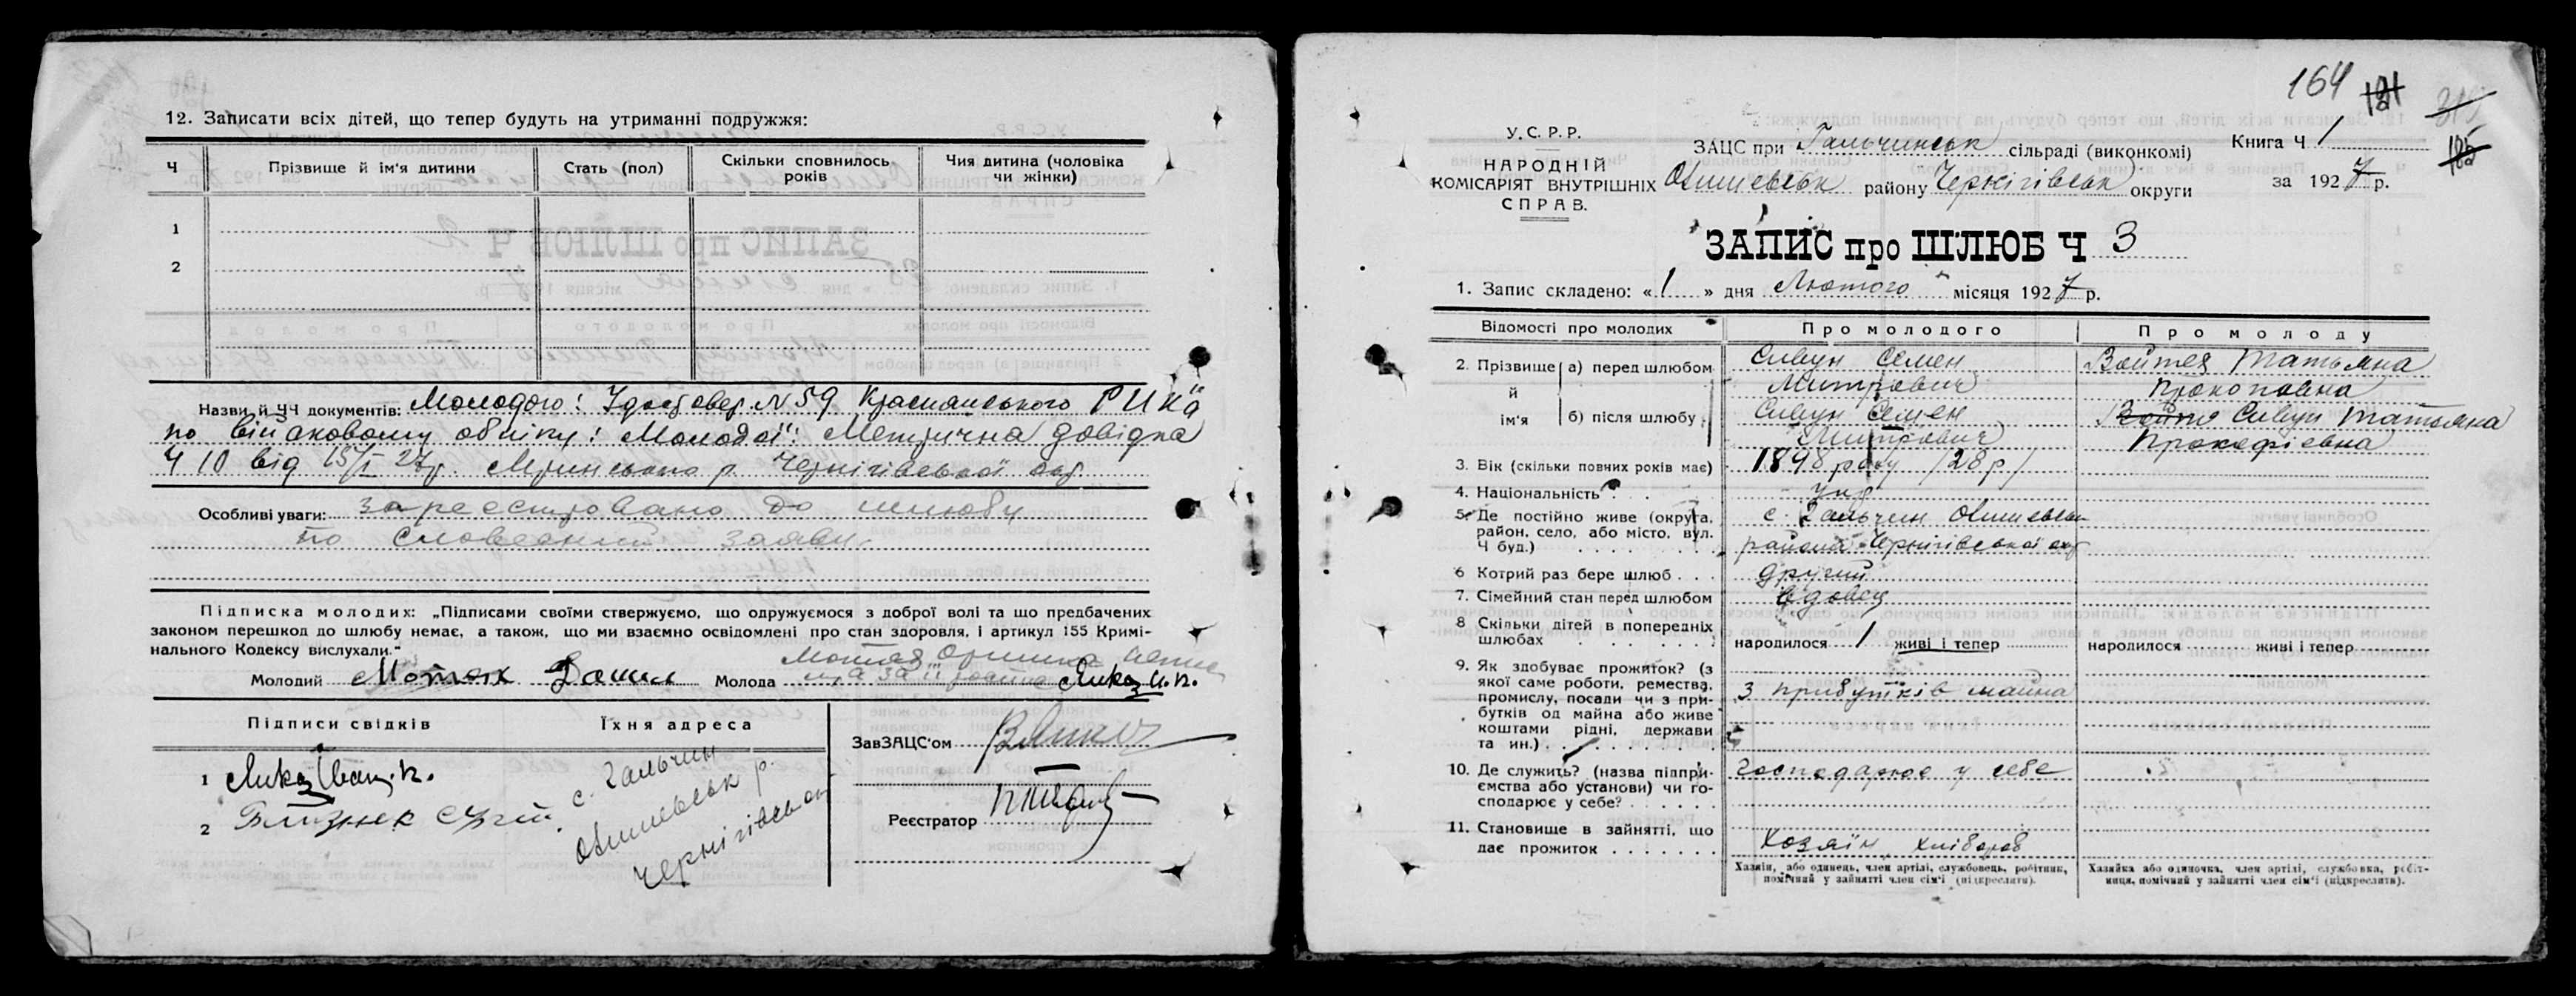 12. Записати всіх дітей, що тепер будуть на утриманні подружжя:
Ч
Прізвище й ім'я дитини
Стать (пол)
Скільки сповнилось років
Чия дитина (чоловіка чи жінки)
1
2
Назви й ЧЧ документів: Молодого: Удостовер. N 59 РИКа
по військовому обліку: Молодої: Метрична довідка
Ч 10 від 15/I 27р. Чернігівської окр.
Особливі уваги: зареєстровано до шлюбу
по словесний заяви
Підписка молодих: „Підписами своїми стверджуємо, що одружуємося з доброї волі та що предбачених
законом перешкод до шлюбу немає, а також, що ми взаємно освідомлені про стан здоровля, і артикул 155 Кримі-
нального Кодексу вислухали."
Молодий Данил Молода
Підписи свідків
Їхня адреса
1
2
с. Гальчин
Олишевськ р.
Чернігівськ
ЗавЗАЦС'ом
Реєстратор
164 121 319
185
У.С.Р.Р.
НАРОДНІЙ
КОМІСАРІЯТ ВНУТРІШНІХ
СПРАВ.
ЗАЦС при Гальчинськ сільраді (виконкомі)
Олишевськ району Чернігівськ округи
Книга Ч 1
за 1927 р.
ЗАПИС про ШЛЮБ Ч 3
1. Запис складено: «1» дня Лютого місяця 1927 р.
Відомості про молодих
Про молодого
Про молоду
2. Прізвище й ім'я
а) перед шлюбом
Сивун Семен
Митрович
Войтея Татьяна
Прокоповна
б) після шлюбу
Сивун Семен
Митрович
Сивун Татьяна
Прокофіевна
3. Вік (скільки повних років має)
1898 року /28 р/
4. Національність
Укр
5. Де постійно живе (округа,
район, село, або місто, вул.
Ч буд.)
с. Гальчин Олишевськ
района Чернігівської окр
6 Котрий раз бере шлюб
другий
7. Сімейний стан перед шлюбом
вдовец
8 Скільки дітей в попередніх
шлюбах
народилося 1 живі і тепер
народилося живі і тепер
9. Як здобуває прожиток? (з
якої саме роботи, ремества,
промислу, посади чи з при-
бутків од майна або живе
коштами рідні, держави
та ин.)
з прибутків майна
10. Де служить? (назва підпри-
ємства або установи) чи го-
сподарює у себе?
Господарює у себе
11. Становище в зайнятті, що
дає прожиток
Хозяїн, хлібороб
Хазяїн, або одинець, член артілі, службовець, робітник,
помічний у зайнятті член сім'ї (підкреслити).
Хазяйка або одиночка, член артілі, службовка, робіт-
ниця, помічний у зайнятті член сім'ї (підкреслити).